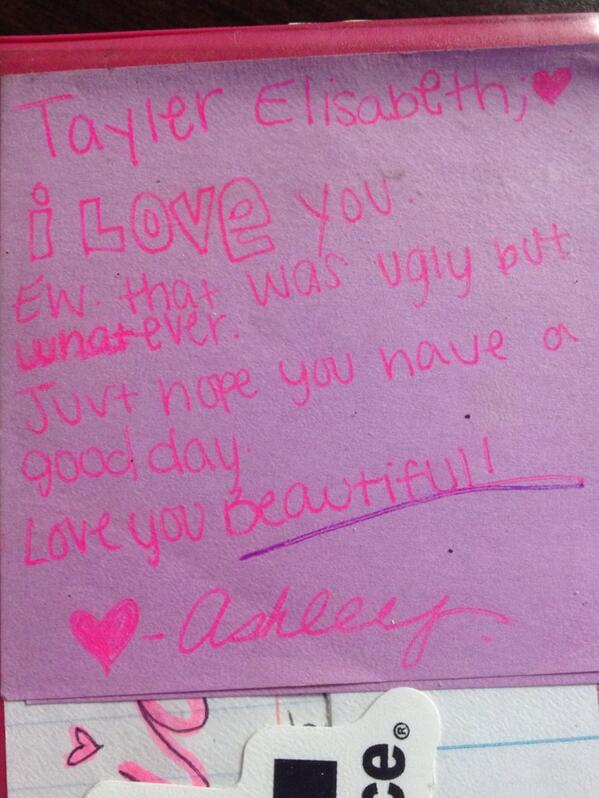 Tayler Elisabeth;♥
i LOVe you.
Ew. that was ugly but
whatever.
Just hope you have a
good day.
Love you Beautiful!
♥-Ashley.
ce®